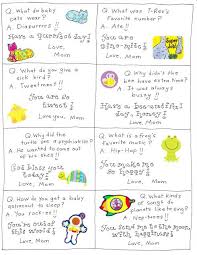 Q. What do baby
cats wear?
A. Diapurrrs!!
Have a purrfect day!
Love,
Mom
Q. What was T-Rex's
favorite number?
A. Ate!!
You are
dino-mite!
Love, Mom
Q. What do you give a
sick bird?
A. Tweetment!!
You are do
sweet!
Love, Mom
Q. Why didn't the
hen have extra
A.
Have a beautiful
day, honey!
Love, Mom
Q. Why did the
turtle see a psychiatrist?
A. He wanted to come out
of his shell!!
God bless you
today!
Love, Mom
Q. What is a frog's
favorite music?
A. Hip-Hop!!
You make me
so happy!
Love, Mom
Q. How do you get a baby
astronaut to sleep?
A. You rock-et!!
You're out of
this world!
Love, Mom
Q. What kinds
of songs do
planets like to sing?
A. Nep-tunes!!
I love you to the moon,
with happiness!
Love, Mom